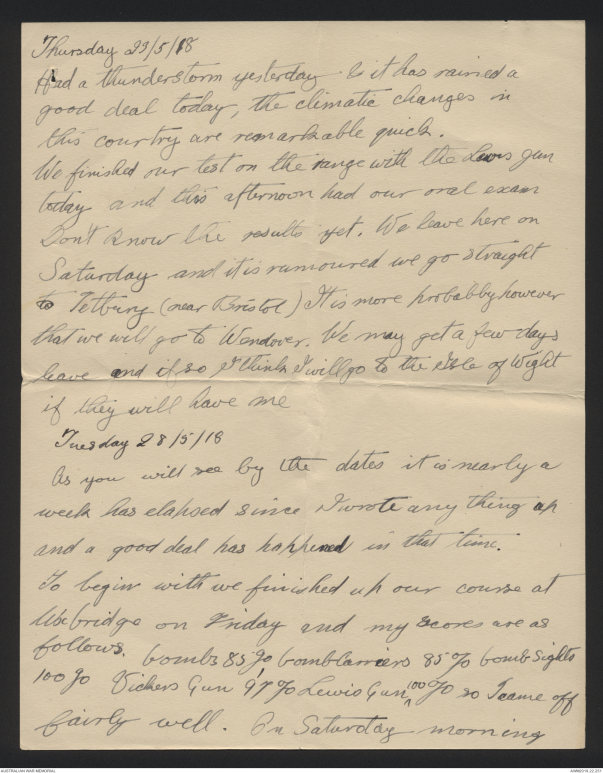 Thursday 23/5/18
Had a thunderstorm yesterday & it has rained a
good deal today, the climatic changes in
this courtry are remarkable quick.
We finished our test on the range with the Lewis gun
today and this afternoon had our oral exam
Don't know the results yet. We leave here on
Saturday and it is rumoured we go straight
to Tetbury (near Bristol) It is more probabby however
that we will go to Wendover. We may get a few days
leave and if so I think I will go to the Isle of Wight
if they will have me
Tuesday 28/5/18
As you will see by the dates it is nearly a
week has elapsed since I wrote any thing up
and a good deal has happened in that time.
To begin with we finished up our course at
Uxbridge on Friday and my scores are as
follows. bombs 85% bomb carriers 85% bomb sights
100% Vickers Gun 97% Lewis Gun 100% so I came off
fairly well. On Saturday morning
AUSTRALIAN WAR MEMORIAL